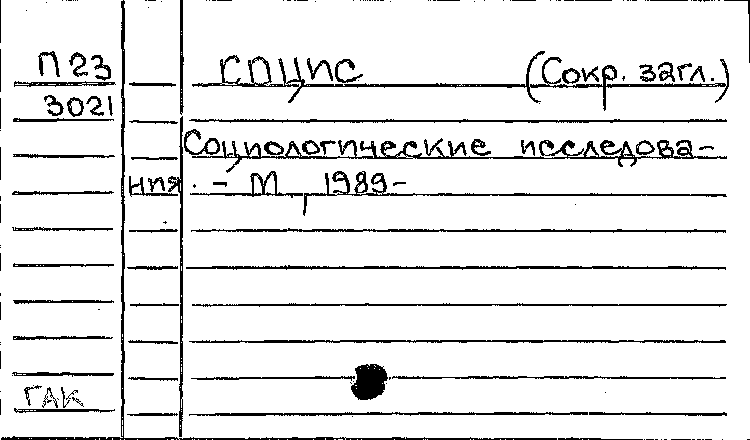 П23 СОЦИС (Сокр. загл.)
3021
Социологические исследова-
ния. - М, 1989-
ГАК